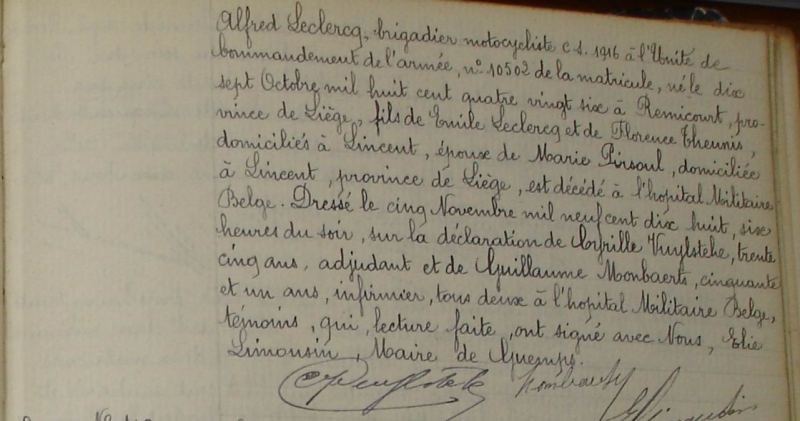 Alfred Leclercq, brigadier motocycliste c.s. 1916 à l'Unité de
Commandement de l'armée, n° 10502 de la matricule, né le dix
sept Octobre mil huit cent quatre vingt six à Remicourt, pro-
vince de Liège, fils de Emile Leclercq et de Florence Theunis,
domiciliés à Lincent, époux de Marie Pirsoul, domiciliée
à Lincent, province de Liège, est décédé à l'hopital Militaire
Belge. Dressé le cinq Novembre mil neuf cent dix huit, six
heures du soir, sur la déclaration de Cyrille Vuylsteke, trente
cinq ans, adjudant et de Guillaume Mombaerts, cinquante
et un ans, infirmier, tous deux à l'hopital Militaire Belge,
témoins, qui, lecture faite, ont signé avec Nous, Elie
Limousin, Maire de Guemps.